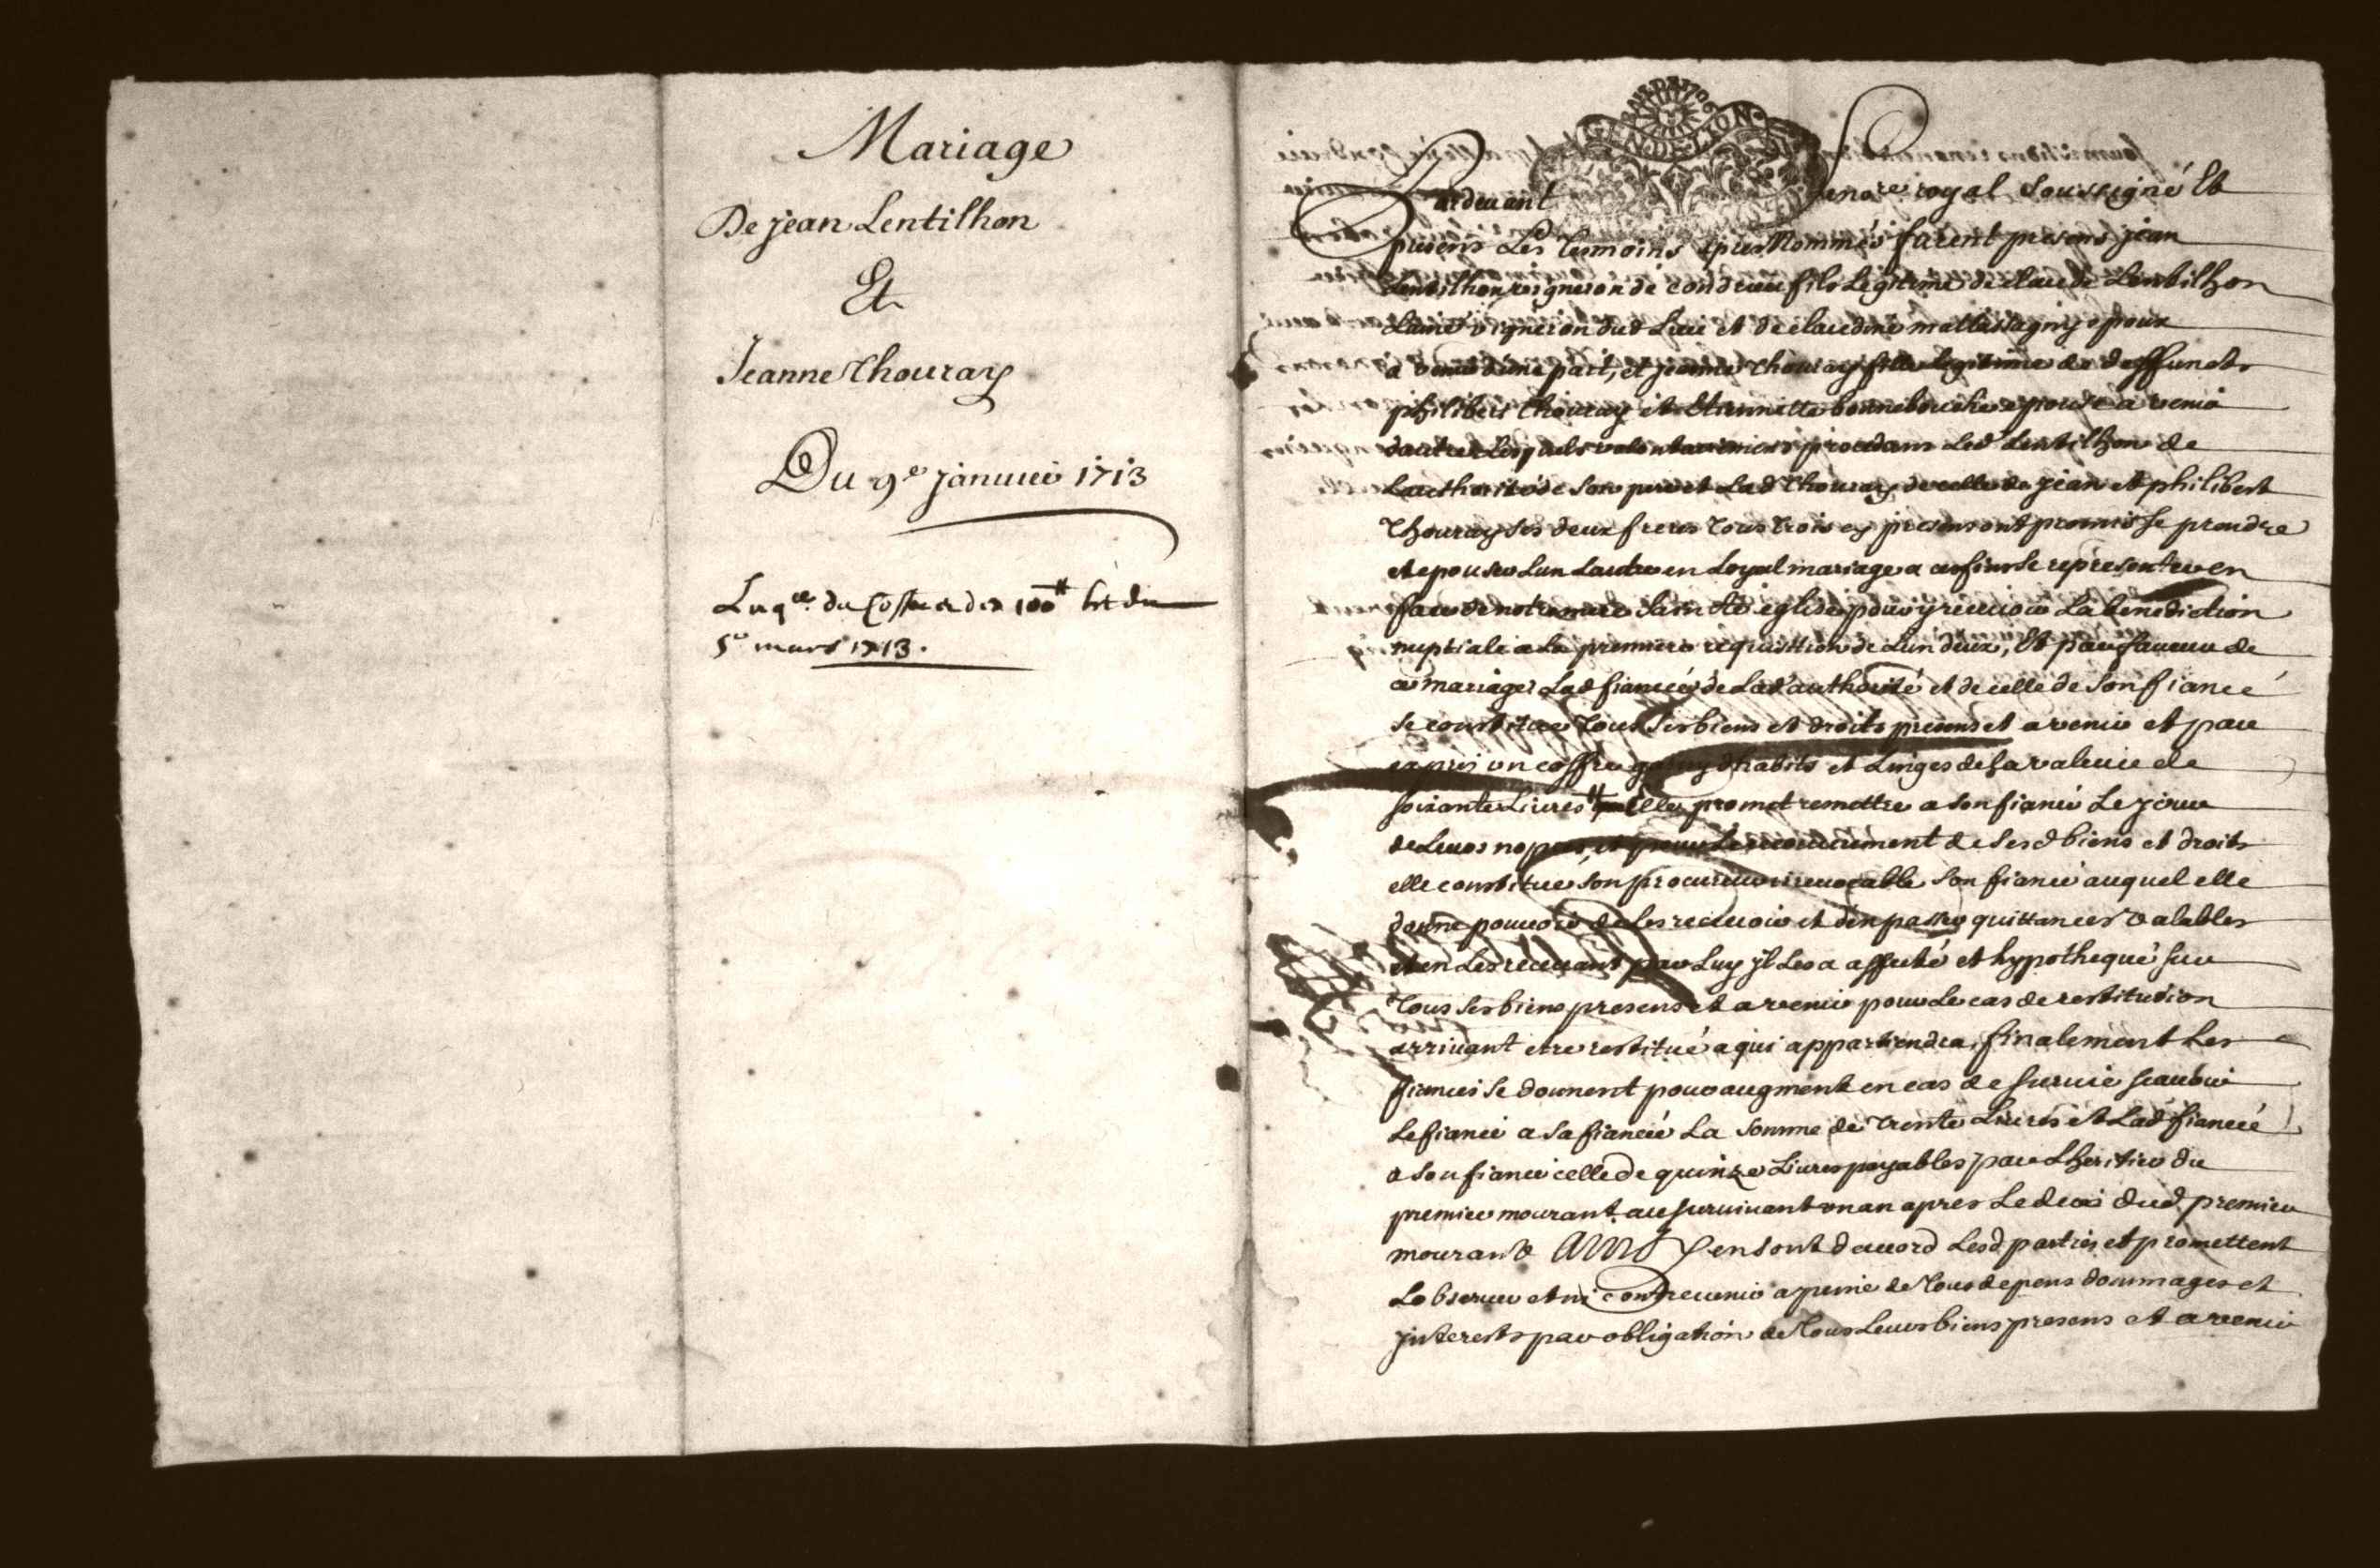 Mariage
De jean Lentilhon
Et
Jeanne Thouray
Du 9e januier 1713
La qce du Coffre et des 100# est du
5e mars 1713.
GEN DE LION
Pardeuant le no.re royal soussigné Et
presens Les Tesmoins apres Nommés furent presens jean
Lentilhon vigneron de condrieu fils Legitime de claude Lentilhon
Laine vigneron dud Lieu et de claudine mattassagny epoux
a venir d'une part, et jeanne Thouray fille legitime de deffuncts
philibert Thouray et Etiennette bonnebouche epouse a venir
dautre Lesquels volontairement procedans Led Lentilhon de
Lauthorité de son pere et Lad Thouray de celle de jean et philibert
Thouray ses deux freres Tous trois cy presens ont promis se prendre
et epouser Lun Lautre en Loyal mariage a ces fins se representer en
face de notre mere Saincte eglise pour y receuoir La benediction
nuptiale a La premiere requisition de Lun deux, Et par faueur de
ce mariage Lad fiancée de Lad authorité et de celle de Son fiancé
se constitue Tous Ses biens et droits presens et a venir et par
expres un coffre garny d'habits et Linges de la valeur de
soixante Liures # qu'elle promet remettre a son fiancé Le jour
de Leurs nopces, et pour Le recouurement de Sesd biens et droits
elle constitue son procureur irreuocable Son fiancé auquel elle
donne pouuoir de Les receuoir et d'en passer quittances valables
et en Les receuant par Luy jl Les a affecté et hypothequé sur
Tous Ses biens presens et a venir pour Le cas de restitution
arriuant etre restitué a qui appartiendra, finalement Les
fiancés Se donnent pour augment en cas de Suruie scauoir
Le fiancé a Sa fiancée La Somme de Trente Liures et Lad fiancée
a Son fiancé celle de quinze Liures payables par L'heritier du
premier mourant au Suruiuant un an apres Le deces dud premier
mourant Ainsy en sont d'accord Lesd parties et promettent
Lobseruer et ni contreuenir a peine de Tous depens dommages et
jnterests par obligation de Tous Leurs biens presens et a venir